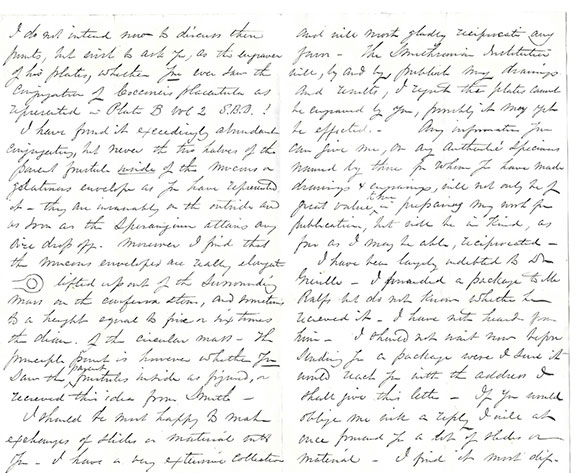 I do not intend now to discuss these
points, but wish to ask you, as the engraver
of his plates, whether you ever saw the
Conjugation of Cocconeis placentula as
represented in Plate B Vol 2 S.B.D.?
I have found it exceedingly abundant
conjugating, but never the two halves of the
parent frustule inside of the mucous or
gelatinous envelope as you have represented
it - they are invariably on the outside and
as soon as the Sporangium attains any
size drop off. Moreover I find that
the mucous envelopes are really elongate
lifted up out of the surrounding
mass on the conferva stem, and sometimes
to a height equal to five or six times
the diam. of the circular mass - the
principle point is however whether you
saw the parent frustules inside as figured, or
received this idea from Smith -
I should be most happy to make
exchanges of slides or material with
you - I have a very extensive collection
and will most gladly reciprocate any
favor - The Smithsonian Institution
will, by and by publish my drawings
and results, I regret the plates cannot
be engraved by you, possibly it may yet
be effected. - Any information you
can give me, or any authentic specimens
named by those for whom you have made
drawings & engravings, will not only be of
great value to me in preparing my work for
publication, but will be in kind, as
far as I may be able, reciprocated -
I have been largely indebted to Dr
Greville - I forwarded a package to Mr
Ralfs but do not know whether he
received it - I have not heard from
him - I should not wait now before
sending you a package were I sure it
would reach you with the address I
shall give this letter - If you would
oblige me with a reply, I will at
once forward you a lot of slides or
material - I find it most dif-